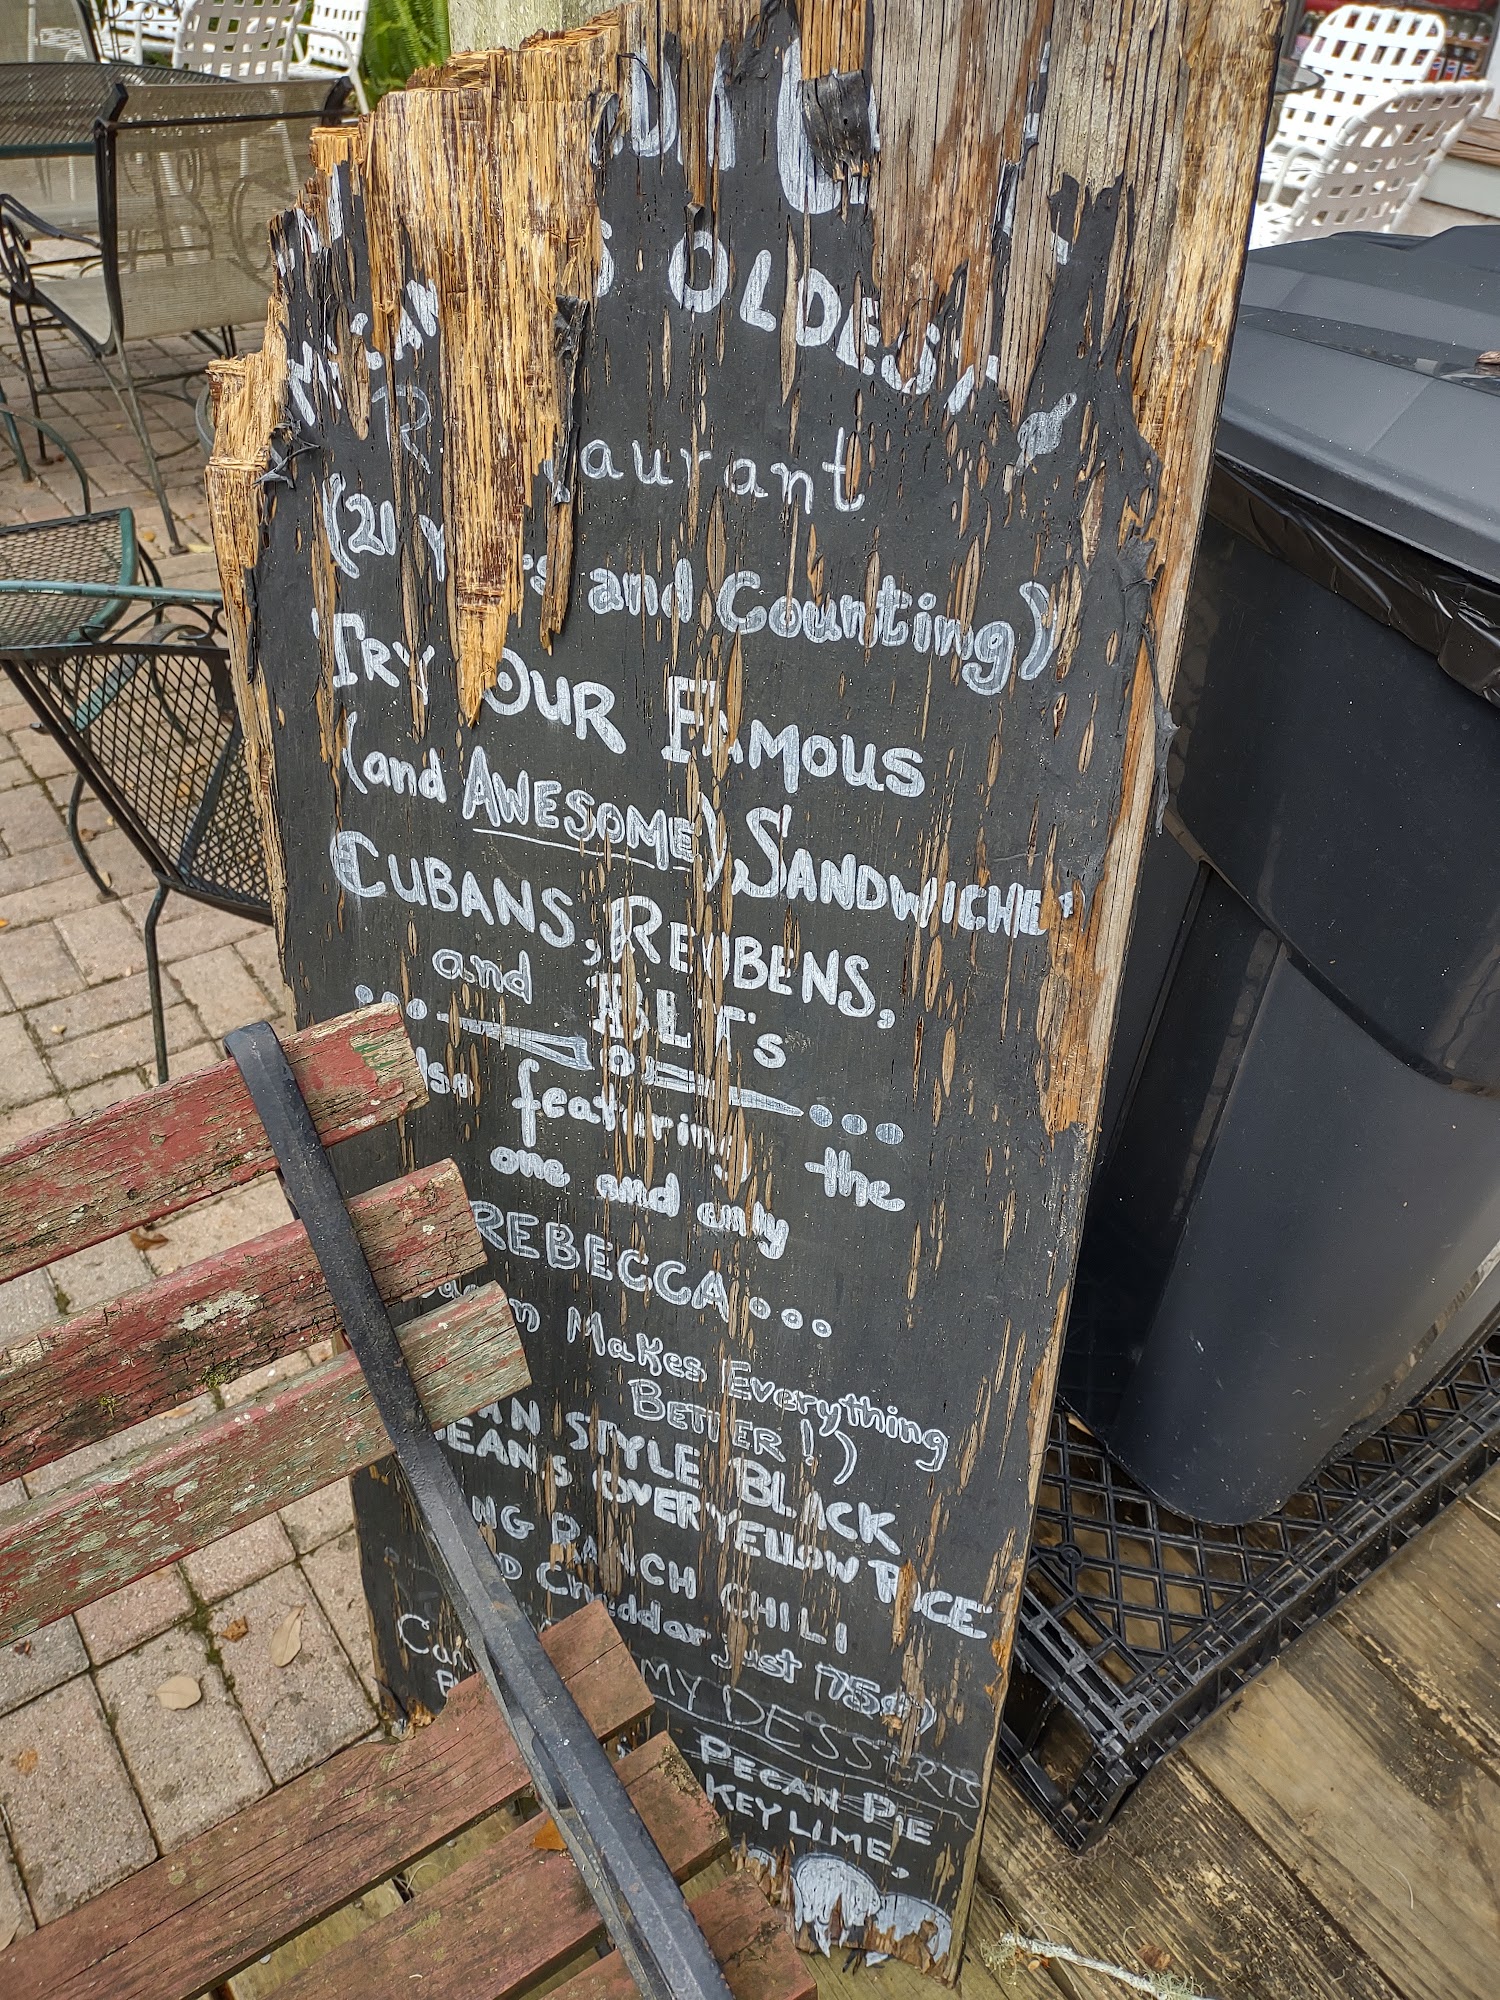 S OLDEST
aurant
(21 and Counting)
TRY OUR FAMOUS
(and AWESOME) SANDWICHE
CUBANS, REUBENS,
and BLT's
lso featuring the
one and only
REBECCA...
Makes Everything
BETTER!)
AN STYLE BLACK
EANS OVER YELLOW RICE
NG RANCH CHILI
Cheddar just 75¢)
MY DESSERTS
PECAN PIE
KEY LIME,